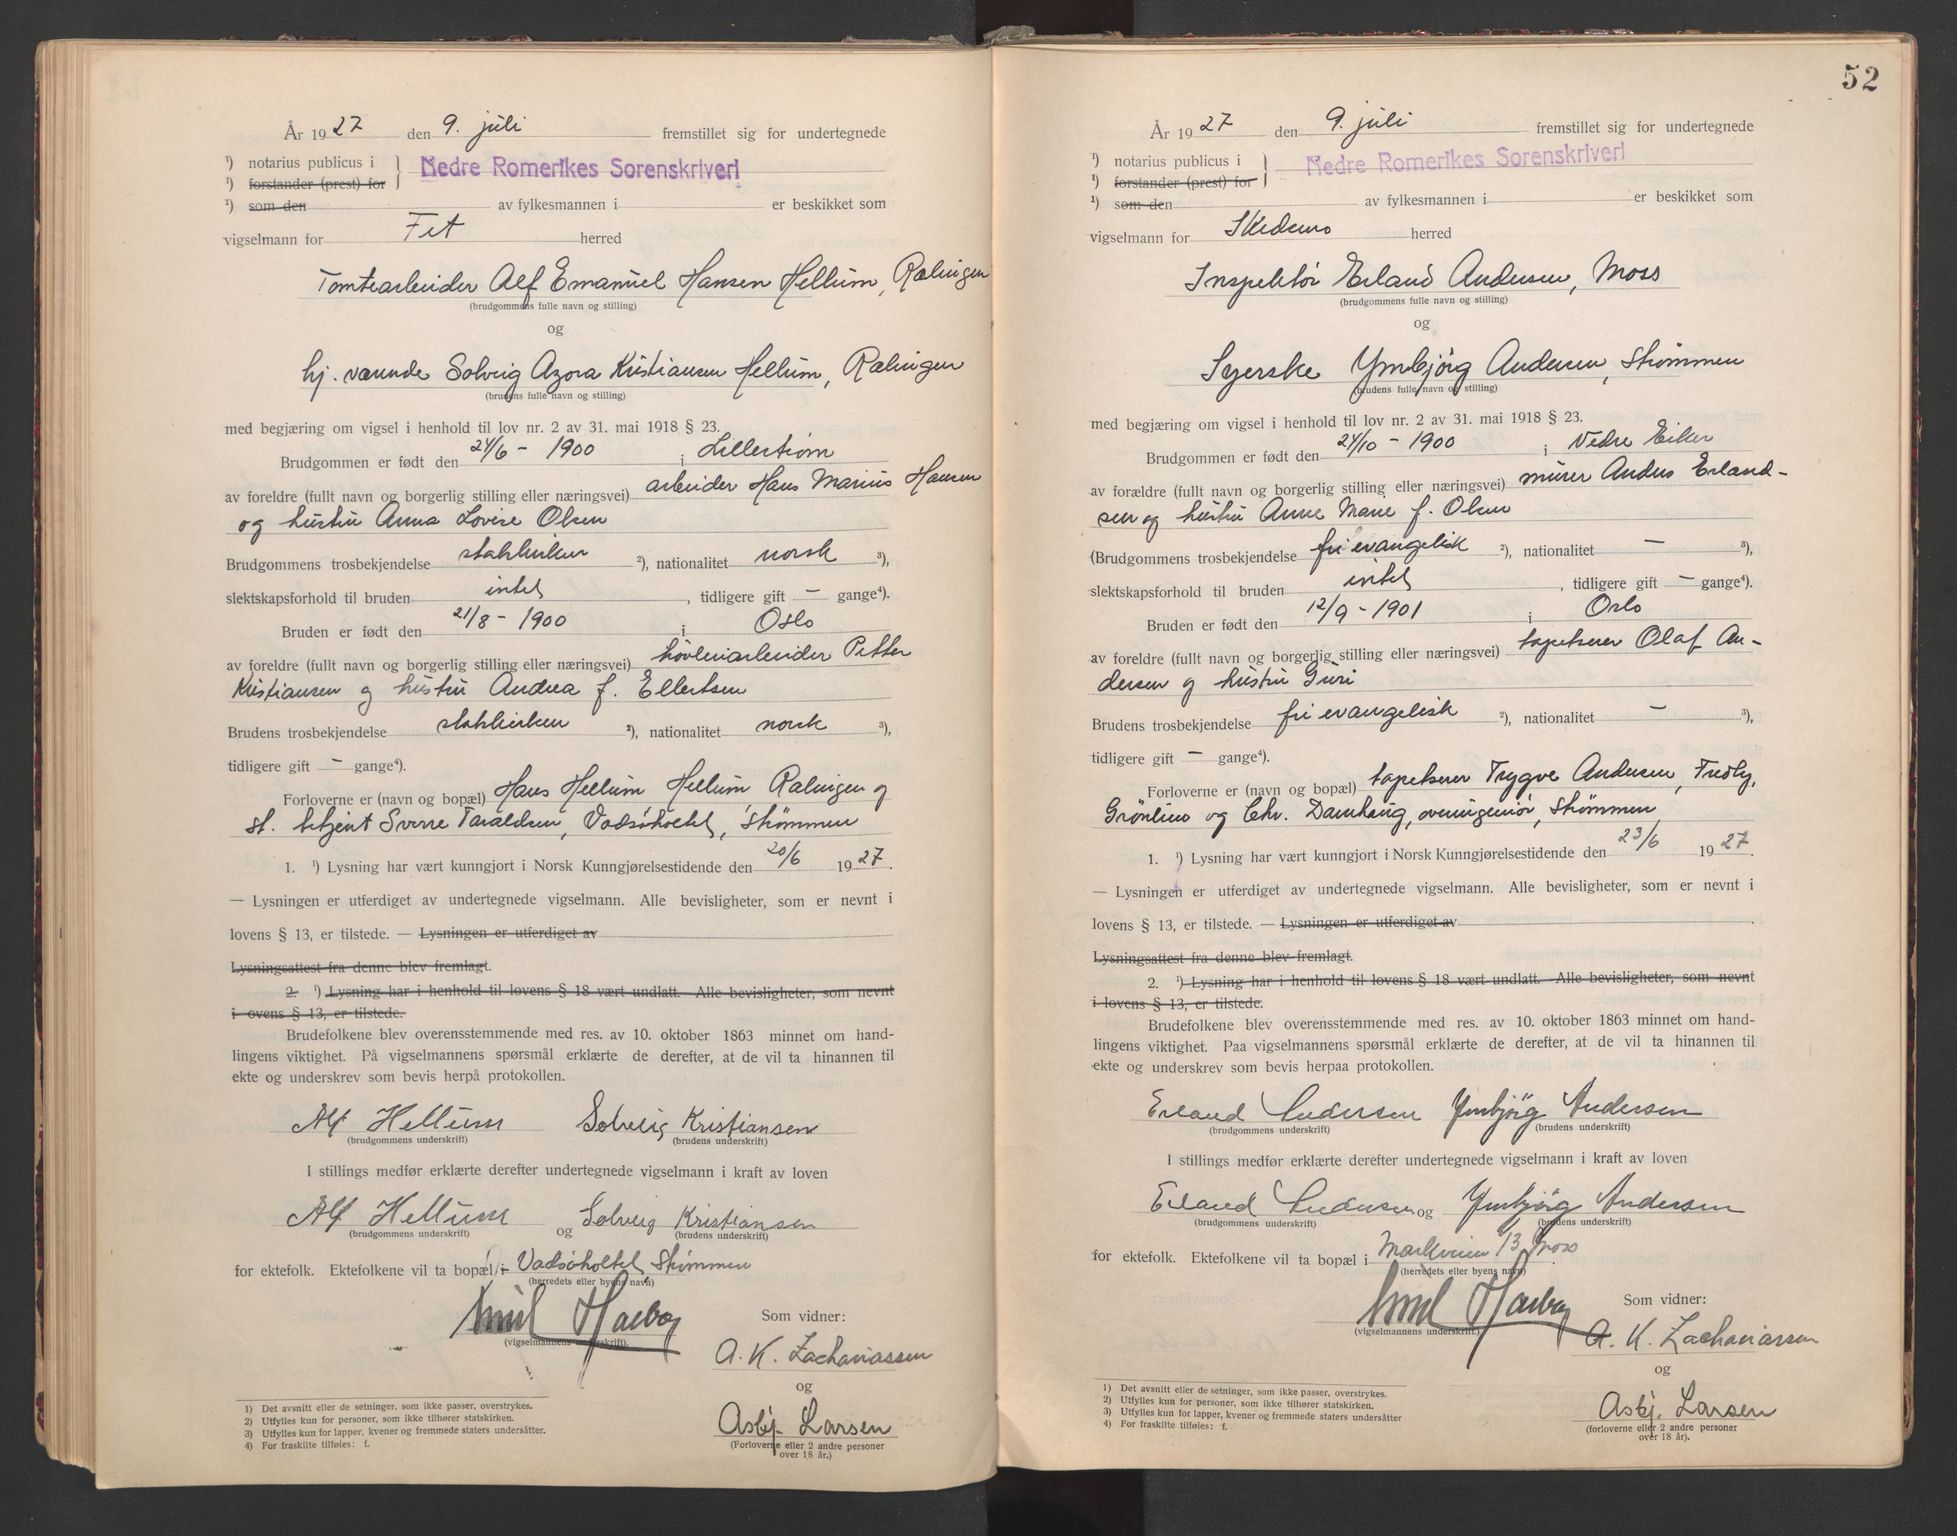 År 1927 den 9. juli fremstillet sig for undertegnede
¹) notarius publicus i } Nedre Romerikes Sorenskriveri
¹) forstander (prest) for
¹) som den av fylkesmannen i er beskikket som
vigselmann for Fet herred
Tomtearbeider Alf Emanuel Hansen Hellum, Rælingen
(brudgommens fulle navn og stilling)
og
hj. værende Solveig Azora Kristiansen Hellum, Rælingen
(brudens fulle navn og stilling)
med begjæring om vigsel i henhold til lov nr. 2 av 31. mai 1918 § 23.
Brudgommen er født den 24/6 - 1900 i Lillestrøm
av foreldre (fullt navn og borgerlig stilling eller næringsvei) arbeider Hans Marius Hansen
og hustru Anna Lovise Olsen
Brudgommens trosbekjendelse statskirken ²), nationalitet norsk ³),
slektskapsforhold til bruden intet, tidligere gift — gange⁴).
Bruden er født den 21/8 - 1900 i Oslo
av foreldre (fullt navn og borgerlig stilling eller næringsvei) høvleriarbeider Petter
Kristiansen og hustru Andrea f. Ellertsen
Brudens trosbekjendelse statskirken ²), nationalitet norsk ³),
tidligere gift — gange⁴).
Forloverne er (navn og bopæl) Hans Hellum Hellum Rælingen og
st. betjent Sverre Taraldsen, Strømmen
1. ¹) Lysning har vært kunngjort i Norsk Kunngjørelsestidende den 20/6 1927.
— Lysningen er utferdiget av undertegnede vigselmann. Alle bevisligheter, som er nevnt i
lovens § 13, er tilstede. — Lysningen er utferdiget av
Lysningsattest fra denne blev fremlagt.
2. ¹) Lysning har i henhold til lovens § 18 vært undlatt. Alle bevisligheter, som nevnt
i ovens § 13, er tilstede.
Brudefolkene blev overensstemmende med res. av 10. oktober 1863 minnet om hand-
lingens viktighet. På vigselmannens spørsmål erklærte de derefter, at de vil ta hinannen til
ekte og underskrev som bevis herpå protokollen.
Alf Hellum Solveig Kristiansen
(brudgommens underskrift) (brudens underskrift)
I stillings medfør erklærte derefter undertegnede vigselmann i kraft av loven
Alf Hellum og Solveig Kristiansen
(brudgommens underskrift) (brudens underskrift)
for ektefolk. Ektefolkene vil ta bopæl i Strømmen
(herredets eller byens navn)
Emil
(vigselmannens underskrift).
Som vidner:
A. K. Zachariassen
og
Asbj. Larsen
(Forloverne eller 2 andre personer
over 18 år.)
1) Det avsnitt eller de setninger, som ikke passer, overstrykes.
2) Utfylles kun for personer, som ikke tilhører statskirken.
3) Utfylles kun for lapper, kvener og fremmede staters undersåtter.
4) For fraskilte tilføies: f.
52
År 1927 den 9. juli fremstillet sig for undertegnede
¹) notarius publicus i } Nedre Romerikes Sorenskriveri
¹) forstander (prest) for
¹) som den av fylkesmannen i er beskikket som
vigselmann for Skedsmo herred
Inspektør Erland Andersen, Moss
(brudgommens fulle navn og stilling)
og
Syerske Ymbjörg Andersen, Strømmen
(brudens fulle navn og stilling)
med begjæring om vigsel i henhold til lov nr. 2 av 31. mai 1918 § 23.
Brudgommen er født den 24/10 - 1900 i Nedre Eiker
av forældre (fullt navn og borgerlig stilling eller næringsvei) murer Anders Erland-
sen og hustru Anne Marie f. Olsen
(Brudgommens trosbekjendelse fri evangelisk ²), nationalitet — ³),
slektskapsforhold til bruden intet, tidligere gift — gange⁴).
Bruden er født den 12/9 - 1901 i Oslo
av foreldre (fullt navn og borgerlig stilling eller næringsvei) tapetserer Olaf An-
dersen og hustru Guri
Brudens trosbekjendelse fri evangelisk ²), nationalitet — ³),
tidligere gift — gange⁴).
Forloverne er (navn og bopæl) tapetserer Trygve Andersen, Fredly,
og Chr. Damhaug, overingeniør, Strømmen
1. ¹) Lysning har vært kunngjort i Norsk Kunngjørelsestidende den 23/6 1927.
— Lysningen er utferdiget av undertegnede vigselmann. Alle bevisligheter, som er nevnt i
lovens § 13, er tilstede. — Lysningen er utferdiget av
Lysningsattest fra denne blev fremlagt.
2. ¹) Lysning har i henhold til lovens § 18 vært undlatt. Alle bevisligheter, som nevnt
i lovens § 13, er tilstede.
Brudefolkene blev overensstemmende med res. av 10. oktober 1863 minnet om hand-
lingens viktighet. Paa vigselmannens spørsmål erklærte de derefter, at de vil ta hinannen til
ekte og underskrev som bevis herpaa protokollen.
Erland Andersen Ymbjörg Andersen
(brudgommens underskrift) (brudens underskrift)
I stillings medfør erklærte derefter undertegnede vigselmann i kraft av loven
Erland Andersen og Ymbjörg Andersen
(brudgommens underskrift) (brudens underskrift)
for ektefolk. Ektefolkene vil ta bopæl i Markveien 13 Moss.
(herredets eller byens navn)
Emil
(vigselmannens underskrift.)
Som vidner:
A. K. Zachariassen
og
Asbj. Larsen
(forloverne eller 2 andre personer
over 18 år).
1) Det avsnitt eller de setninger, som ikke passer, overstrykes.
2) Utfylles kun for personer, som ikke tilhører statskirken.
3) Utfylles kun for lapper, kvener og fremmede staters undersåtter
4) For fraskilte tilføies: f.